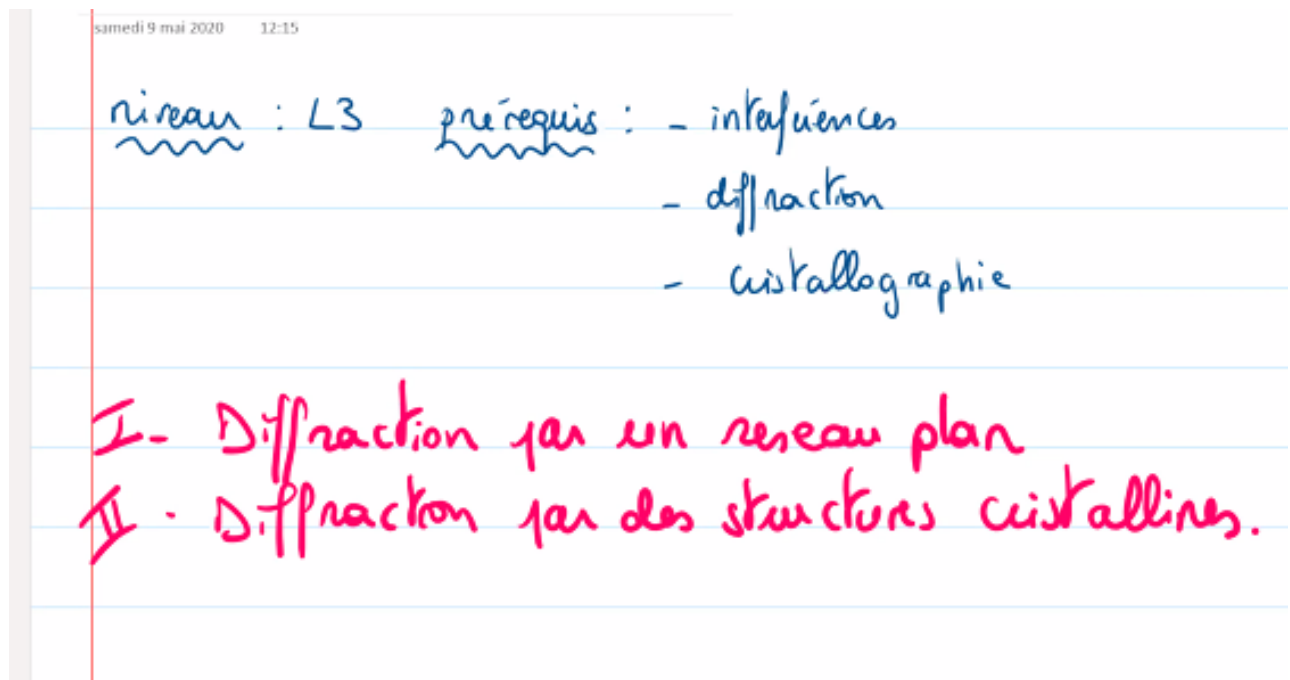 samedi 9 mai 2020 12:15
niveau : L3 prérequis : - interférences
- diffraction
- cristallographie
I- Diffraction par un reseau plan
II - Diffraction par des structures cristallines.